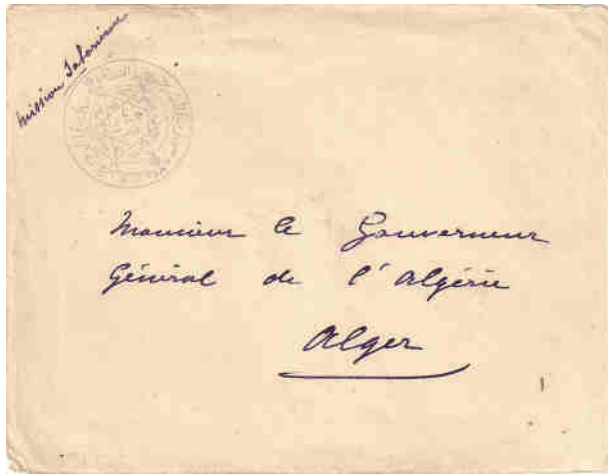 Mission
Monsieur le Gouverneur
Général de l'Algérie
Alger